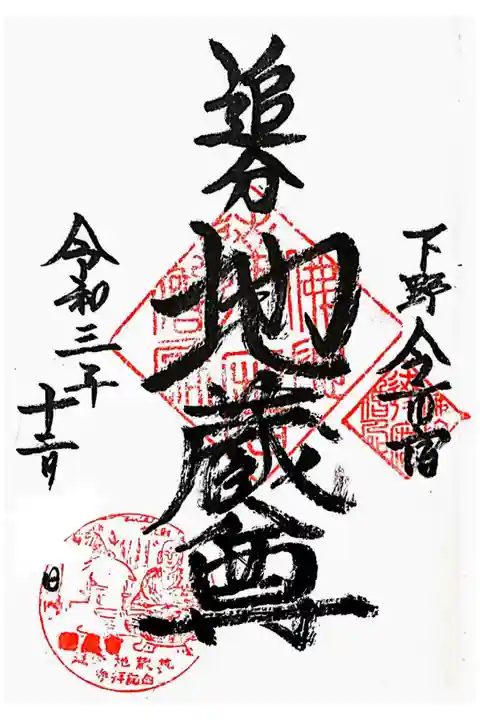 下野今市宿
追分
地蔵尊
令和三年
十二月
日